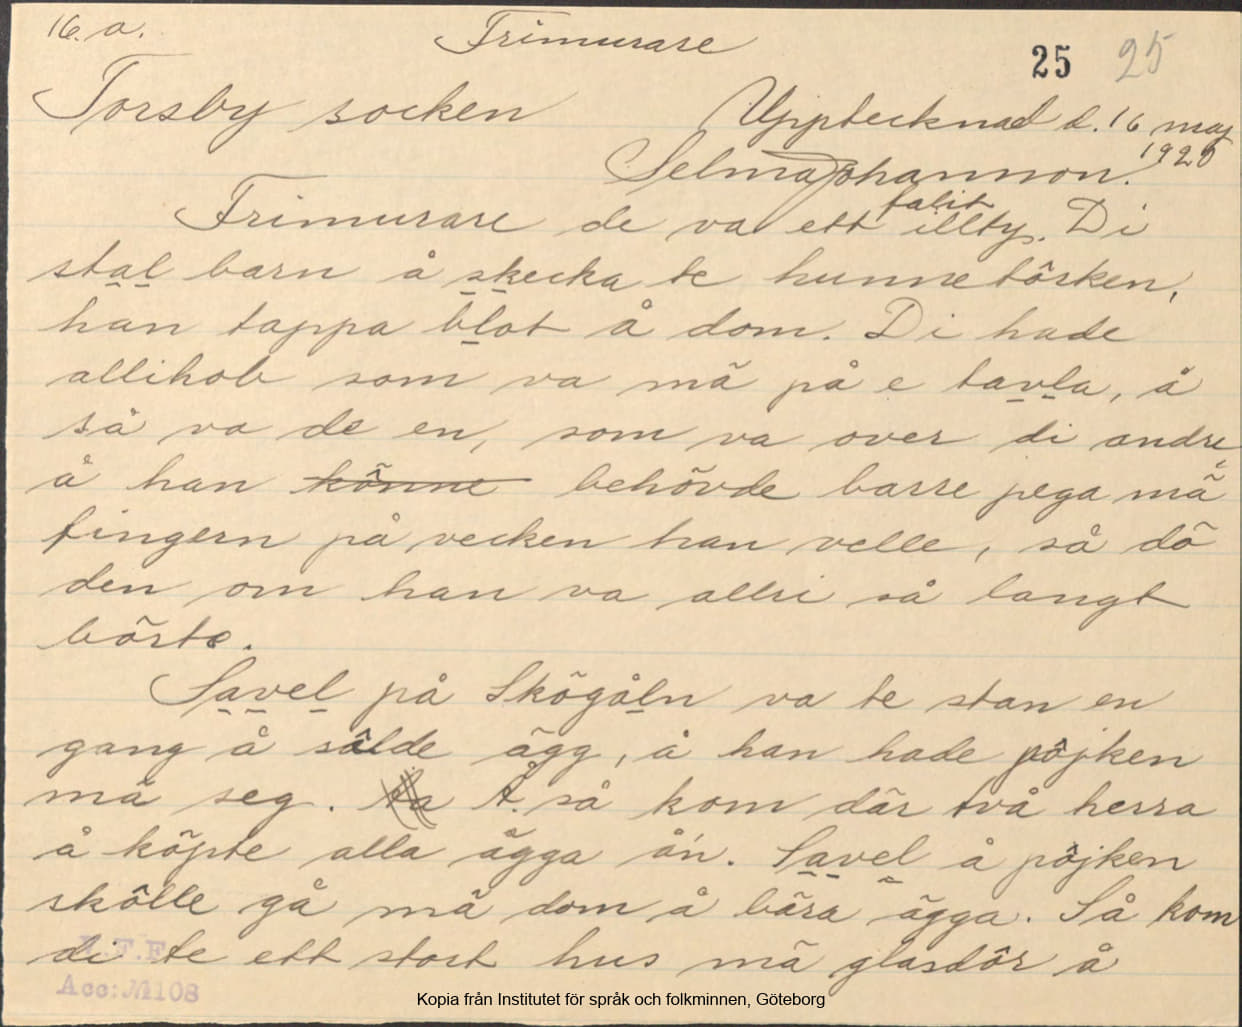 16. a. Frimurare
25 25
Torsby socken Upptecknad d. 16 maj
1920
Selma Johannon.
falit
Frimurare de va ett illty. Di
stal barn å skecka te hunnetörsken,
han tappa blot å dom. Di hade
allihob som va mä på e tavla, å
så va de en, som va over di andre
å han könne behövde barre pega mä
fingern på vecken han velle, så dö
den om han va allri så langt
börte.
Savel på Skögåln va te stan en
gang å sâlde ägg, å han hade pôjken
mä seg. ta Å så kom där två herra
å köpte alla ägga å'n. Savel å pôjken
skôlle gå mä dom å bära ägga. Så kom
di te ett stort hus mä glasdôr å
V.F.F.
Acc: № 108
Kopia från Institutet för språk och folkminnen, Göteborg